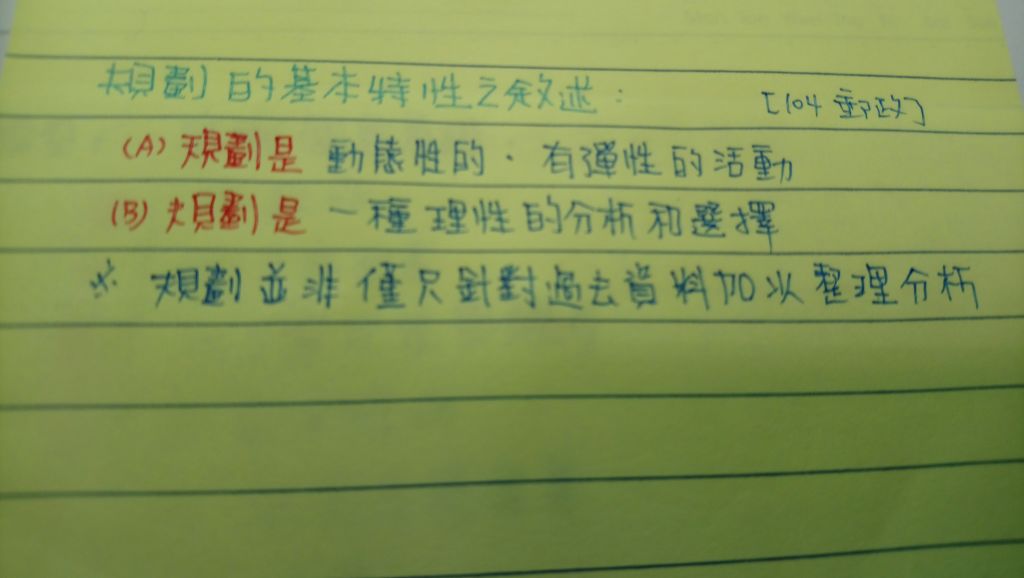 規劃的基本特性之敘述： [104 郵政]
(A) 規劃是 動態性的、有彈性的活動
(B) 規劃是 一種理性的分析和選擇
※ 規劃並非僅只針對過去資料加以整理分析